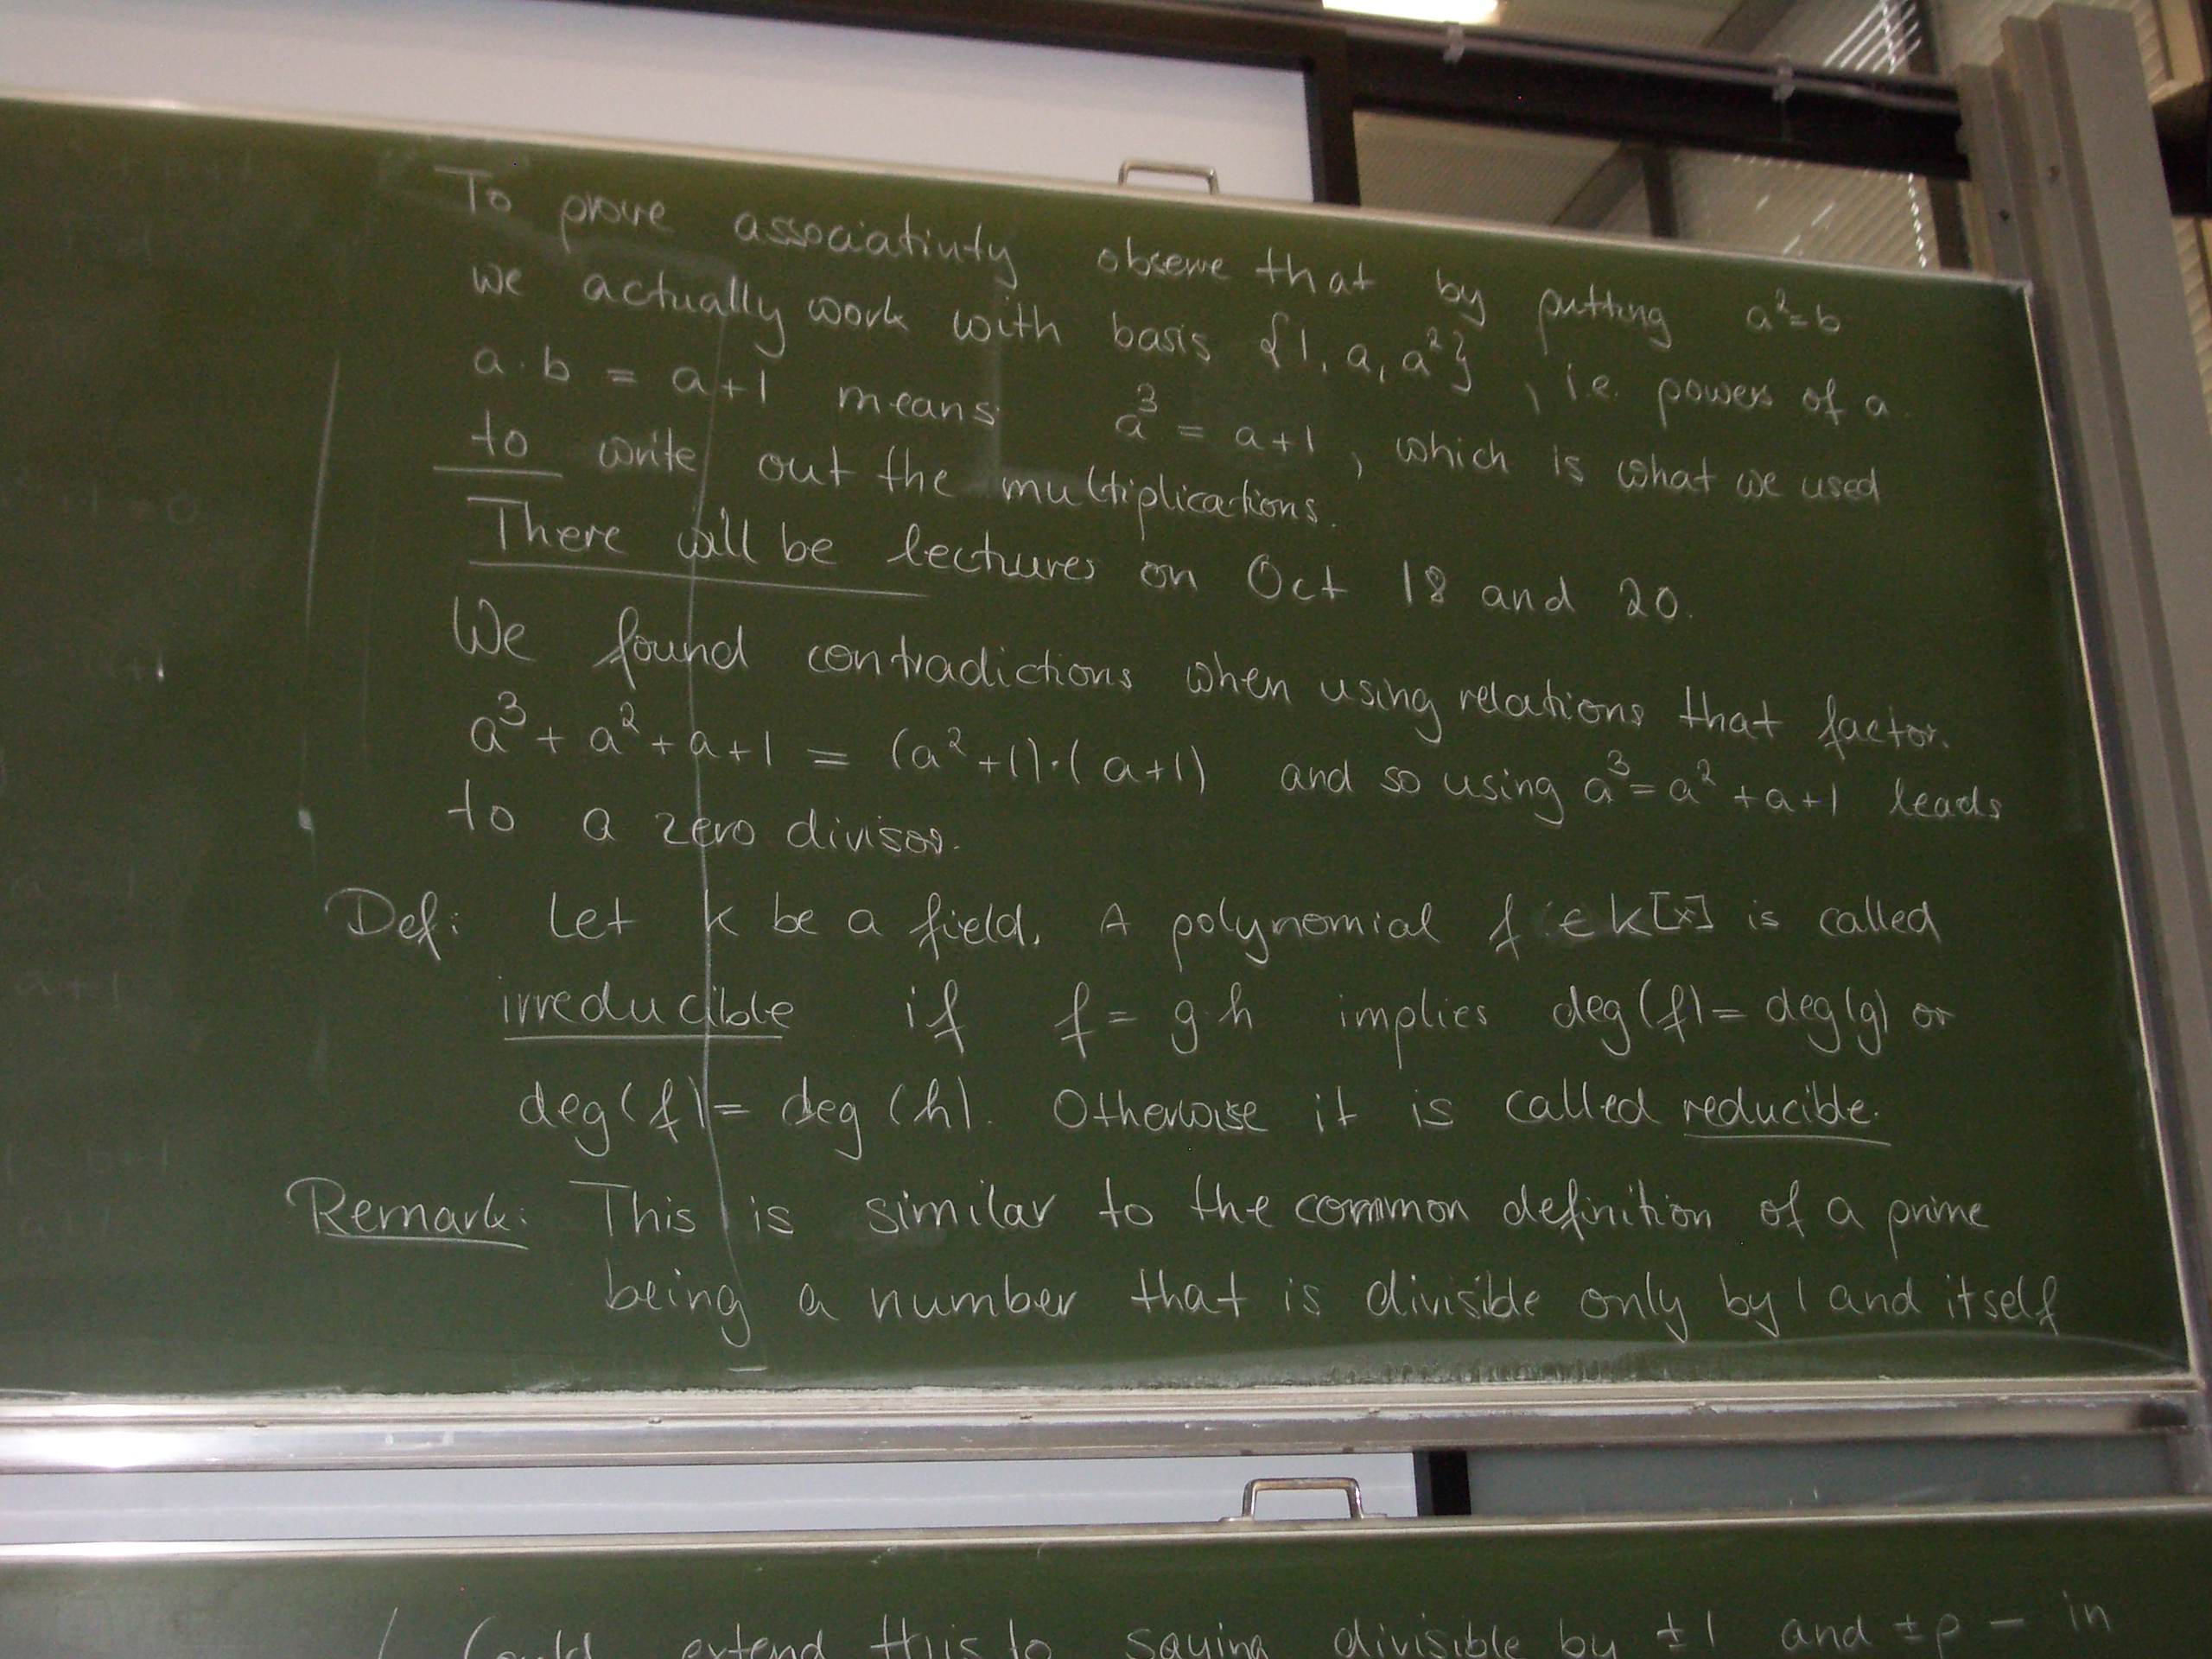 To prove associativity observe that by putting a²=b
we actually work with basis {1, a, a²}, i.e. powers of a.
a·b = a+1 means a³ = a+1, which is what we used
to write out the multiplications.
There will be lectures on Oct 18 and 20.
We found contradictions when using relations that factor.
a³ + a² + a + 1 = (a² + 1)·(a+1) and so using a³ = a² + a + 1 leads
to a zero divisor.
Def: Let k be a field. A polynomial f ∈ k[x] is called
irreducible if f = g·h implies deg(f) = deg(g) or
deg(f) = deg(h). Otherwise it is called reducible.
Remark: This is similar to the common definition of a prime
being a number that is divisible only by 1 and itself
( Could extend this to saying divisible by ±1 and ±p – in